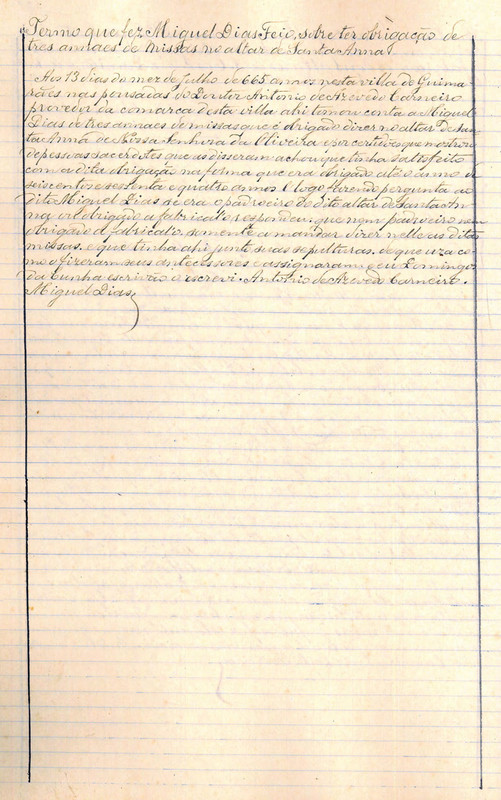 Termo que fez Miguel Dias Feio, sobre ter obrigação de
tres annaes de missas no altar de Santa Anna.
Aos 13 dias do mez de Julho de 665 annos nesta villa de Guima
rães nas pousadas do Doutor Antonio de Azevedo Carneiro
provedor da comarca desta villa ahi tomou conta a Miguel
Dias de tres annaes de missas que é obrigado dizer no altar de San
ta Anna de Nossa Senhora da Oliveira e por certidões que mostrou
de pessoas sacerdotes que as disseram achou que tinha satisfeito
com a dita obrigação na forma que era obrigado até o anno de
seiscentos e sessenta e quatro annos. E logo fazendo pergunta ao
dito Miguel Dias se era o padroeiro do dito altar de Santa An
na ou obrigado a fabrical-o respondeu que nem padroeiro nem
obrigado a fabrical-o. sómente a mandar dizer nelle as ditas
missas. e que tinha ahi junto suas sepulturas. de que uza co
mo o fizeram seus antecessores e assignaram e eu Domingos
da Cunha escrivão o escrevi. Antonio de Azevedo Carneiro.
Miguel Dias